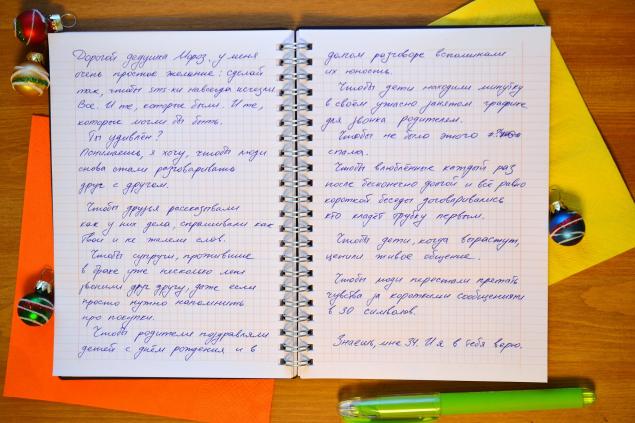 Дорогой дедушка Мороз, у меня
очень простое желание: сделай
так, чтобы sms-ки навсегда исчезли
Все. И те, которые были. И те,
которые могли бы быть.
Ты удивлён?
Понимаешь, я хочу, чтобы люди
снова стали разговаривать
друг с другом.
Чтобы друзья рассказывали
как у них дела, спрашивали как
твои и не жалели слов.
Чтобы супруги, прожившие
в браке уже несколько лет
звонили друг другу, даже если
просто нужно напомнить
про покупки.
Чтобы родители поздравляли
детей с днём рождения и в
долгом разговоре вспоминали
их юность.
Чтобы дети находили минутку
в своём ужасно занятом графике
для звонка родителям.
Чтобы не было этого
спама.
Чтобы влюблённые каждый раз
после бесконечно долгой и всё равно
короткой беседы договаривались
кто кладёт трубку первым.
Чтобы дети, когда вырастут,
ценили живое общение.
Чтобы люди перестали прятать
чувства за короткими сообщениями
в 30 символов.
Знаешь, мне 34. И я в тебя верю.